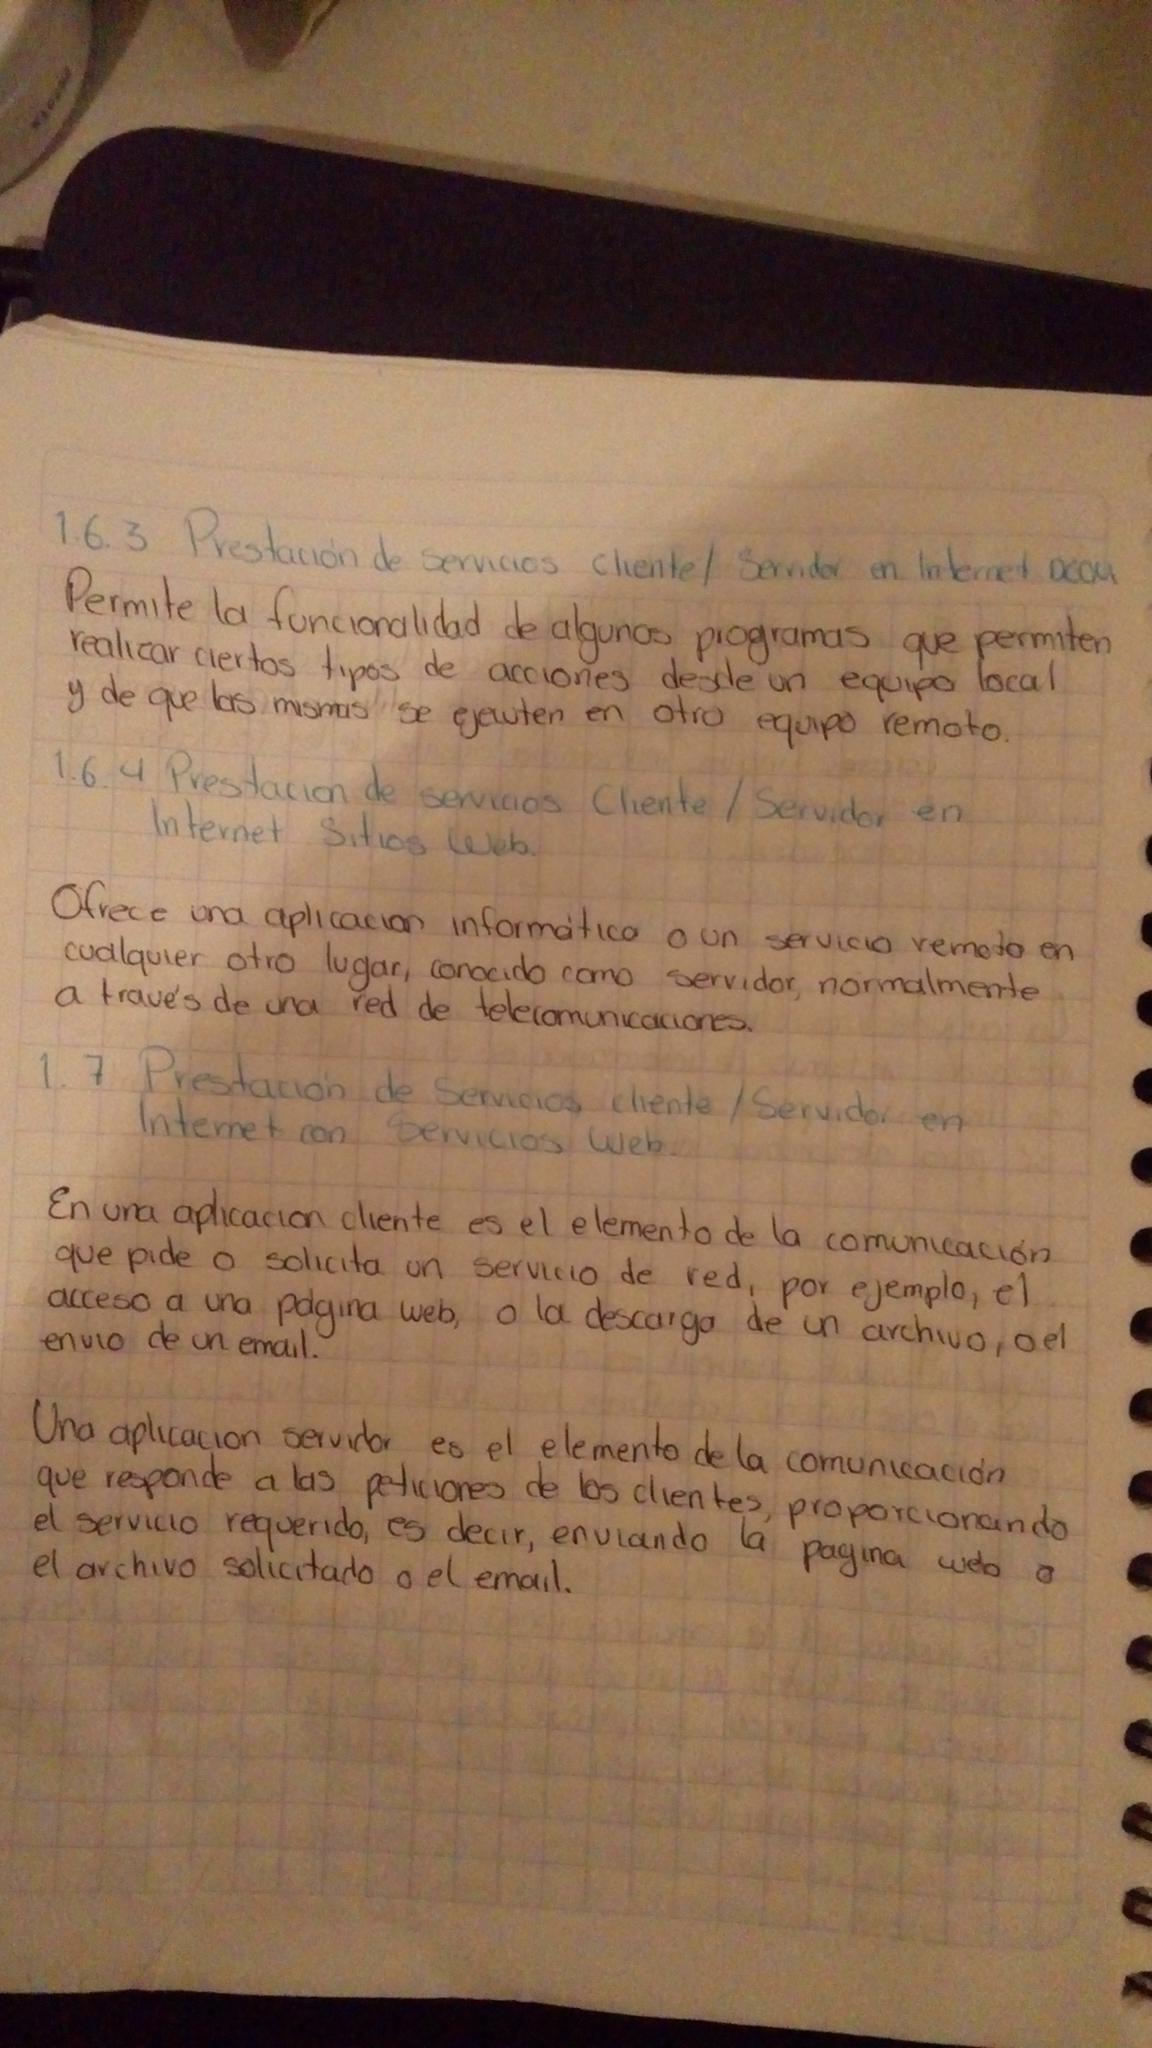 1.6.3 Prestación de servicios cliente/ Servidor en Internet
Permite la funcionalidad de algunos programas que permiten
realizar ciertos tipos de acciones desde un equipo local
y de que las mismas se ejecuten en otro equipo remoto.
1.6.4 Prestacion de servicios Cliente / Servidor en
Internet Sitios Web.
Ofrece una aplicacion informática o un servicio remoto en
cualquier otro lugar, conocido como servidor, normalmente
a través de una red de telecomunicaciones.
1.7 Prestación de Servicios cliente / Servidor en
Internet con Servicios Web.
En una aplicacion cliente es el elemento de la comunicación
que pide o solicita un servicio de red, por ejemplo, el
acceso a una página web, o la descarga de un archivo, o el
envio de un email.
Una aplicacion servidor es el elemento de la comunicación
que responde a las peticiones de los clientes, proporcionando
el servicio requerido, es decir, enviando la pagina web o
el archivo solicitado o el email.